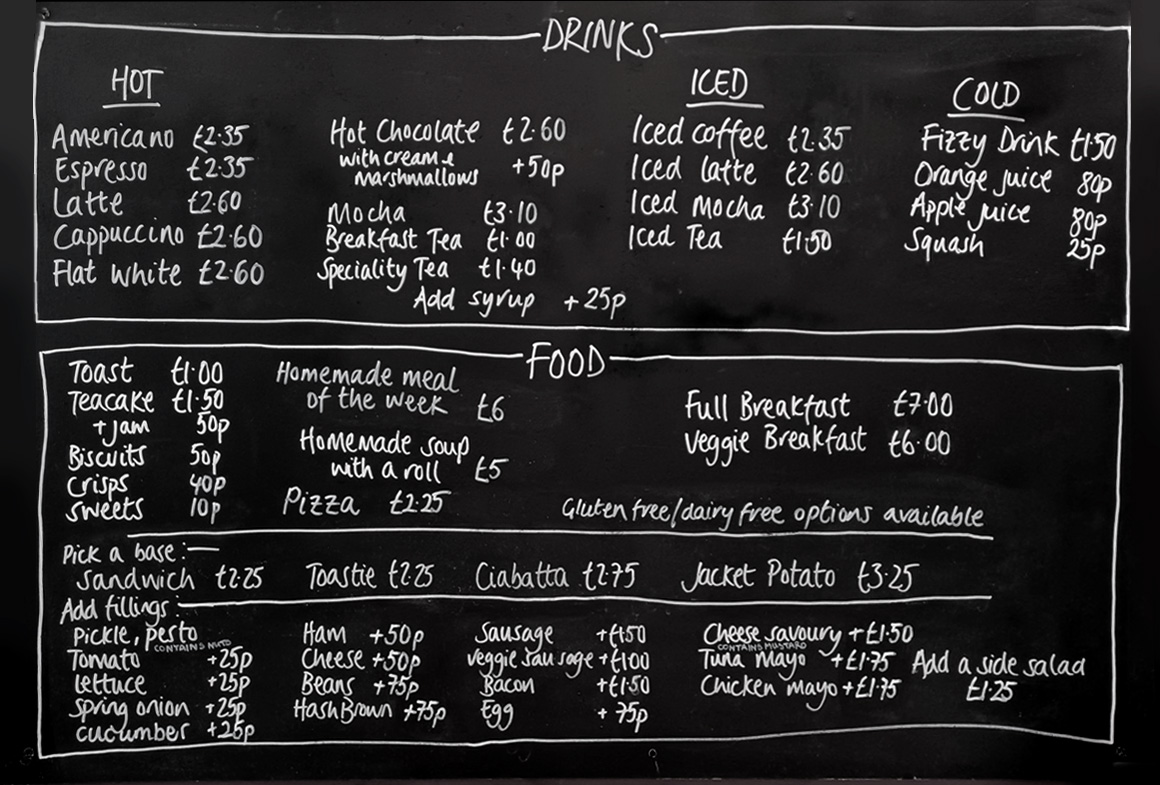 DRINKS
HOT
Americano £2.35
Espresso £2.35
Latte £2.60
Cappuccino £2.60
Flat white £2.60
Hot Chocolate £2.60
with cream &
marshmallows +50p
Mocha £3.10
Breakfast Tea £1.00
Speciality Tea £1.40
Add syrup +25p
ICED
Iced coffee £2.35
Iced latte £2.60
Iced Mocha £3.10
Iced Tea £1.50
COLD
Fizzy Drink £1.50
Orange juice 80p
Apple juice 80p
Squash 25p
FOOD
Toast £1.00
Teacake £1.50
+jam 50p
Biscuits 50p
Crisps 40p
sweets 10p
Homemade meal
of the week £6
Homemade soup
with a roll £5
Pizza £2.25
Full Breakfast £7.00
Veggie Breakfast £6.00
Gluten free/dairy free options available
Pick a base:
sandwich £2.25 Toastie £2.25 Ciabatta £2.75 Jacket Potato £3.25
Add fillings:
pickle, pesto
CONTAINS NUTS
Tomato +25p
lettuce +25p
spring onion +25p
cucumber +25p
Ham +50p
Cheese +50p
Beans +75p
Hash Brown +75p
Sausage +£1.50
veggie sausage +£1.00
Bacon +£1.50
Egg +75p
Cheese savoury +£1.50
CONTAINS MUSTARD
Tuna mayo +£1.75
Chicken mayo +£1.75
Add a side salad
£1.25